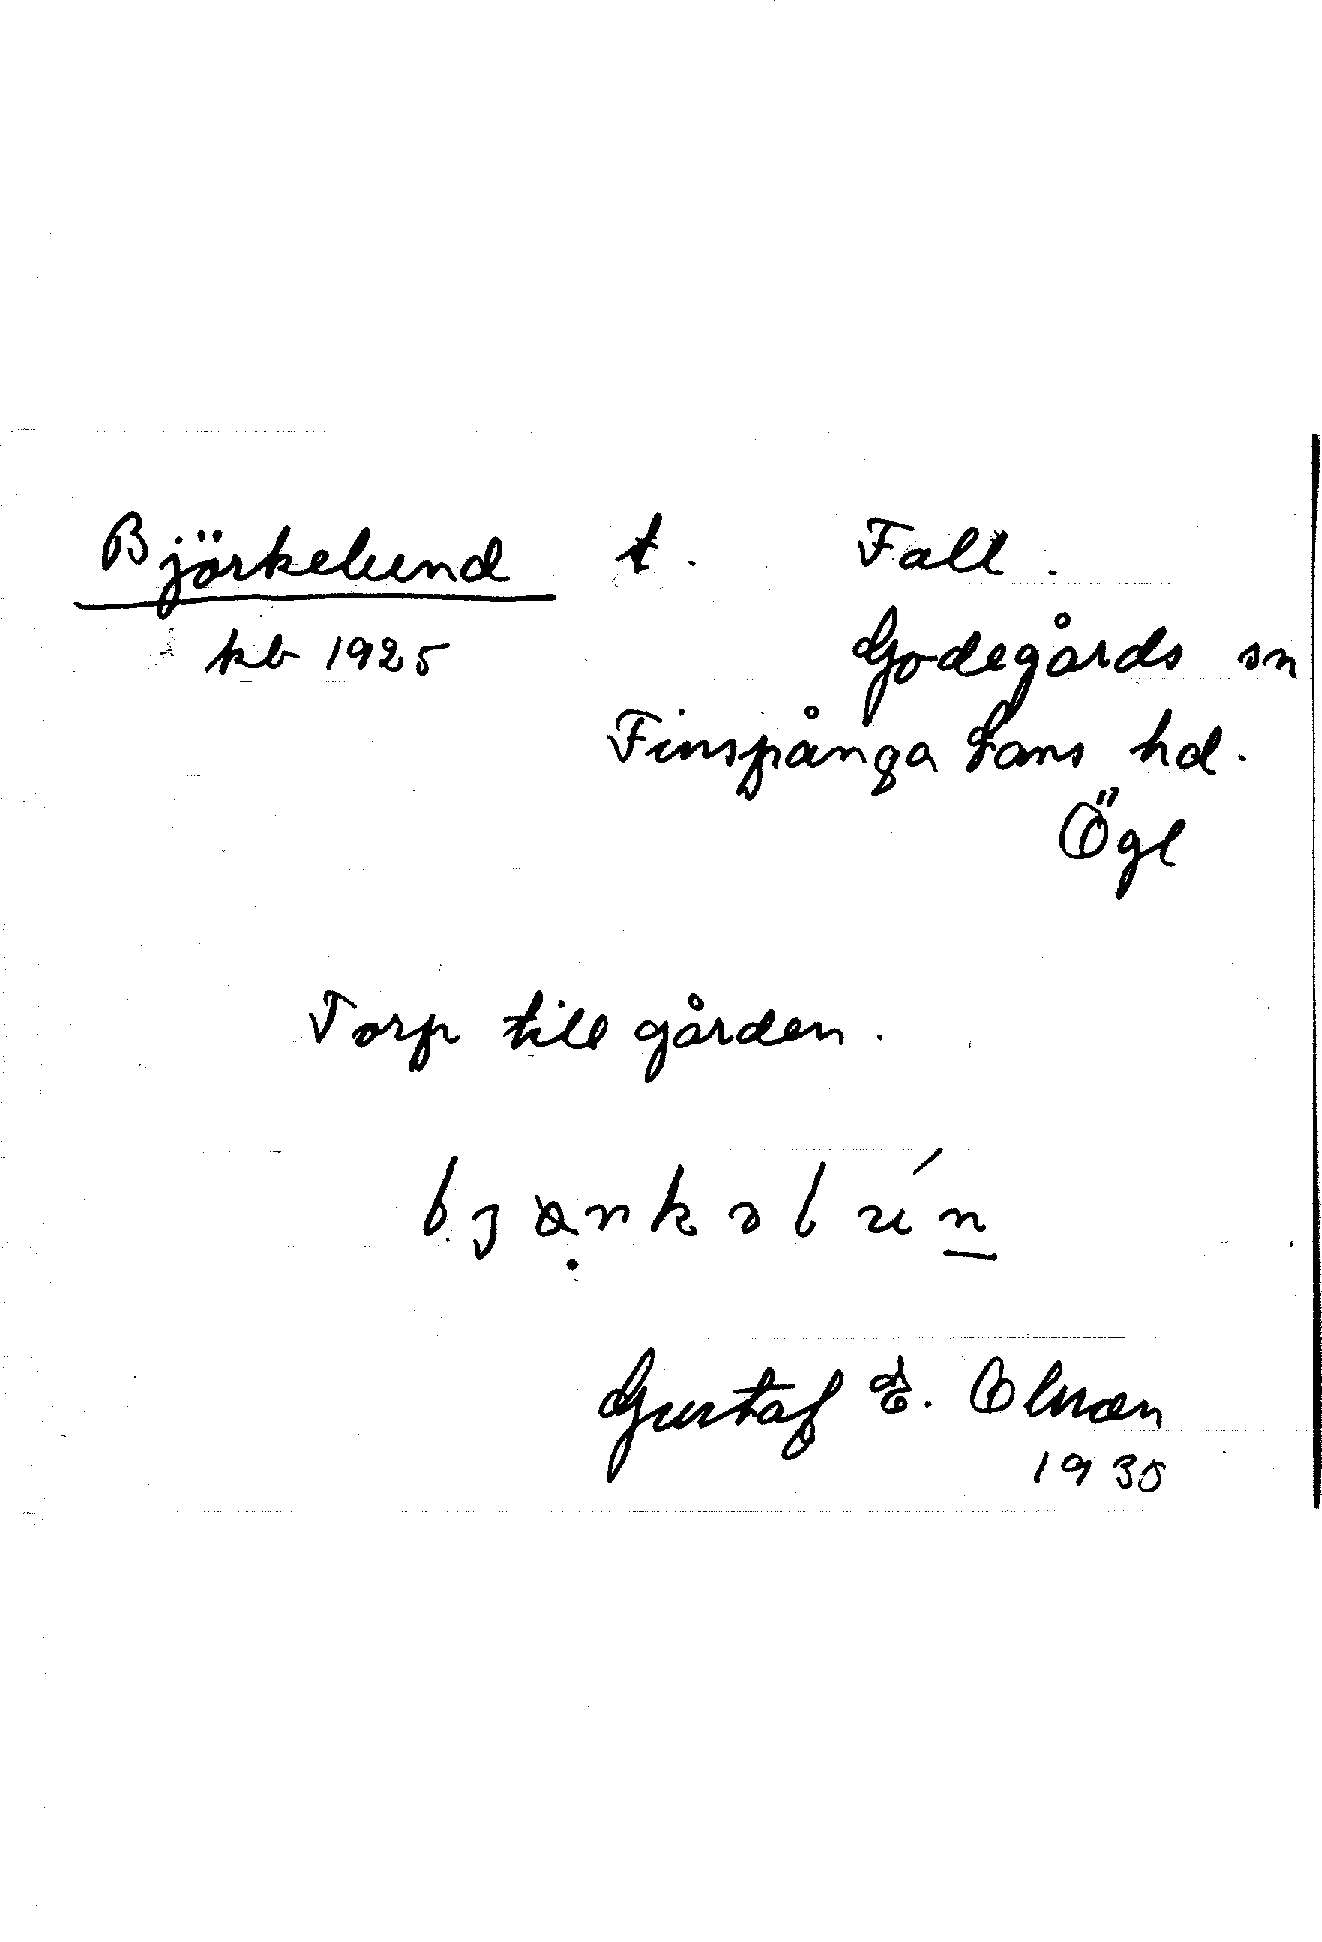 Björkelund t. Fall.
kb 1925 Godegårds sn
Finspånga läns hd.
Ögl
Torp till gården.
bjø̣rkəlún̲
Gustaf E. Olsson
1935